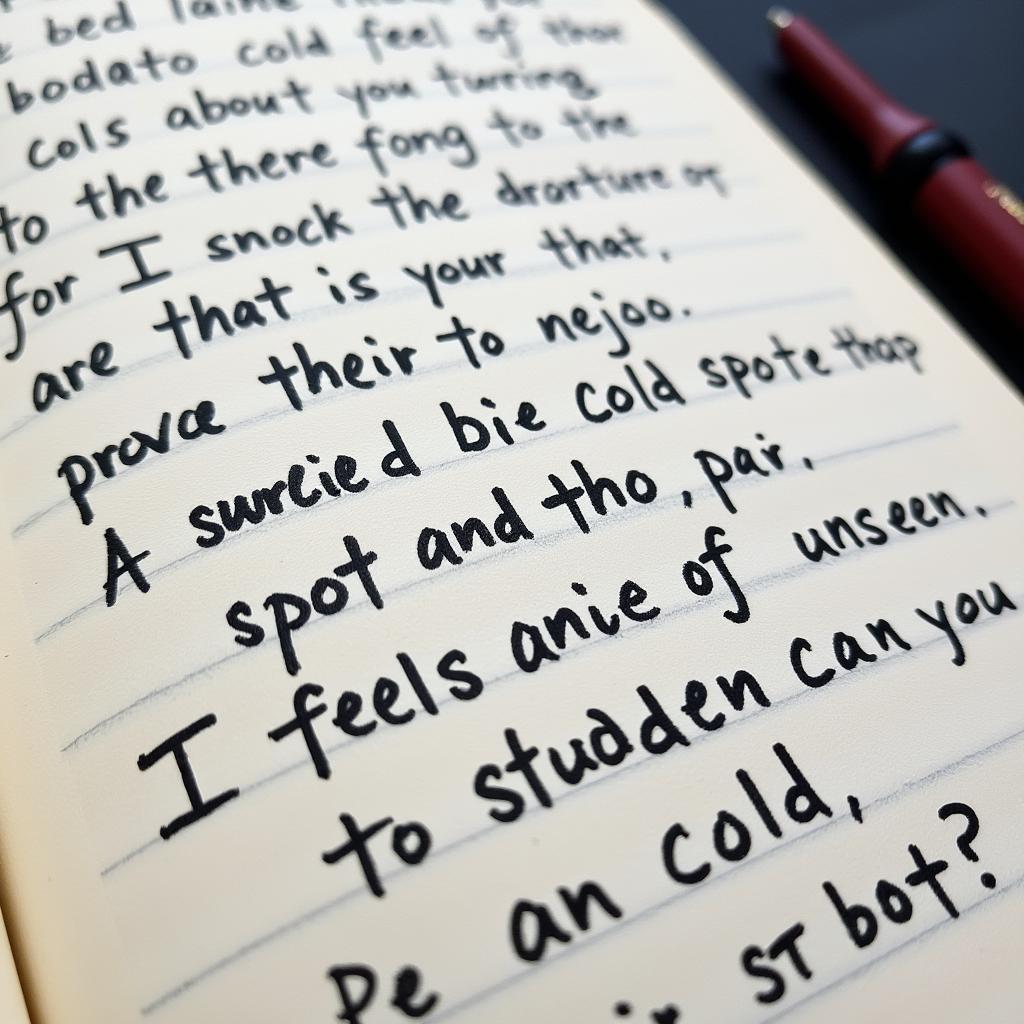 bed
bodato cold feel of
cols about you turring
to the there fong to the
for I snock the drorture or
are that is your that,
provae their to nejoo.
A surcied bie cold spote thap
spot and tho, pair.
I feels anie of unseen.
to studden can you
Pe an cold,
ST bot?